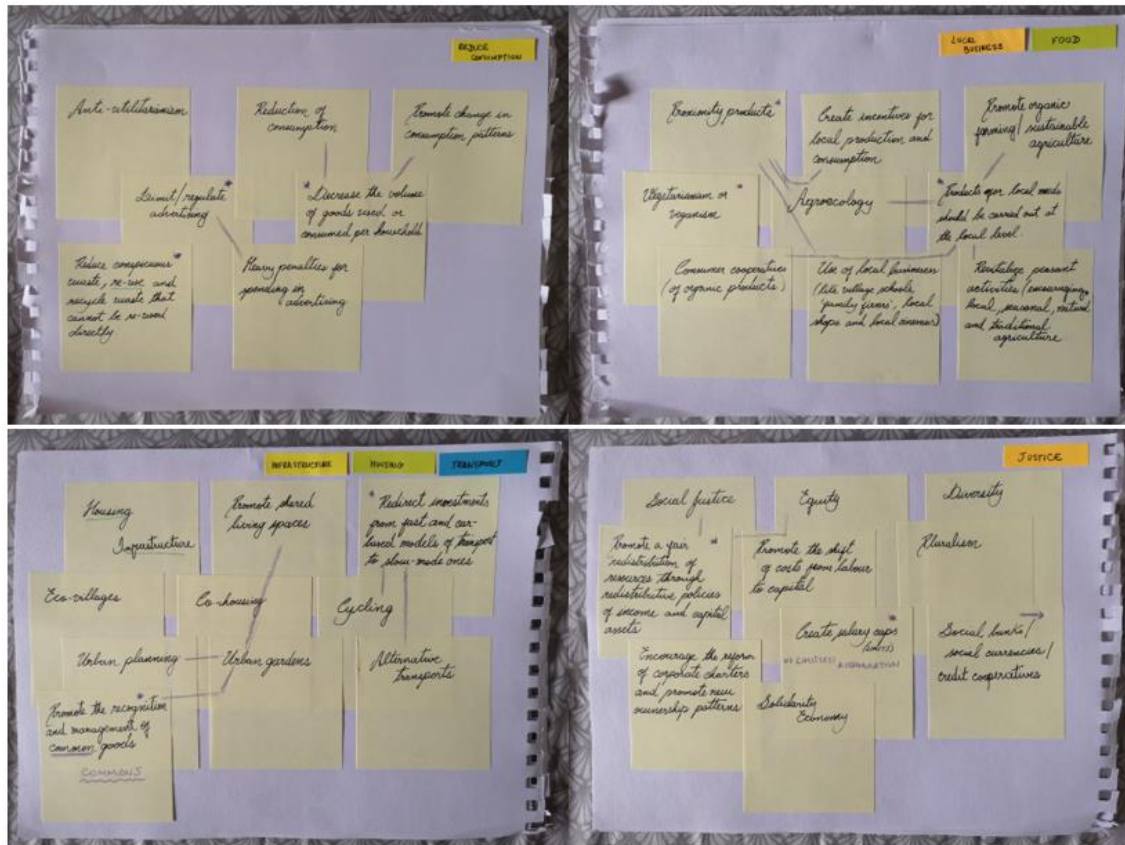 REDUCE
CONSUMPTION
Anti-utilitarianism
Reduction of
consumption
Promote change in
consumption patterns
Limit/regulate
advertising
Decrease the volume
of goods used or
consumed per household
Reduce conspicuous
waste, re-use and
recycle waste that
cannot be re-used
directly
Heavy penalties for
spending in
advertising
LOCAL
BUSINESS
FOOD
Proximity products
Create incentives for
local production and
consumption
Promote organic
farming/sustainable
agriculture
Vegetarianism or
veganism
Agroecology
Products for local needs
should be carried out at
the local level.
Consumer cooperatives
(of organic products)
Use of local businesses
(like village schools
'family firms', local
shops and local cinemas)
Revitalize peasant
activities (encouraging
local, seasonal, natural
and traditional
agriculture
INFRASTRUCTURE
HOUSING
TRANSPORT
Housing
Infrastructure
Promote shared
living spaces
Redirect investments
from fast and car-
based models of transport
to slow-mode ones
Eco-villages
Co-housing
Cycling
Urban planning
Urban gardens
Alternative
transports
Promote the recognition
and management of
common goods
COMMONS
JUSTICE
Social Justice
Equity
Diversity
Promote a fair
redistribution of
resources through
redistributive policies
of income and capital
assets
Promote the shift
of costs from labour
to capital
Pluralism
Create salary caps
Social banks/
social currencies/
credit cooperatives
Encourage the reform
of corporate charters
and promote new
ownership patterns
Solidarity
Economy